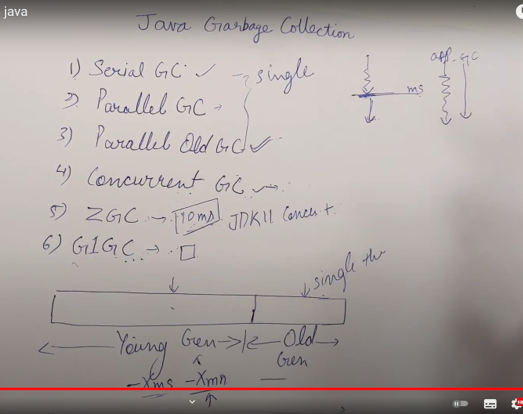 java
Java Garbage Collection
1) Serial GC
single
2) Parallel GC
3) Parallel Old GC
4) Concurrent GC
5) ZGC → 10ms JDK11
6) G1GC →
ms
GC
single
Young Gen
Old Gen
-Xms -Xmn